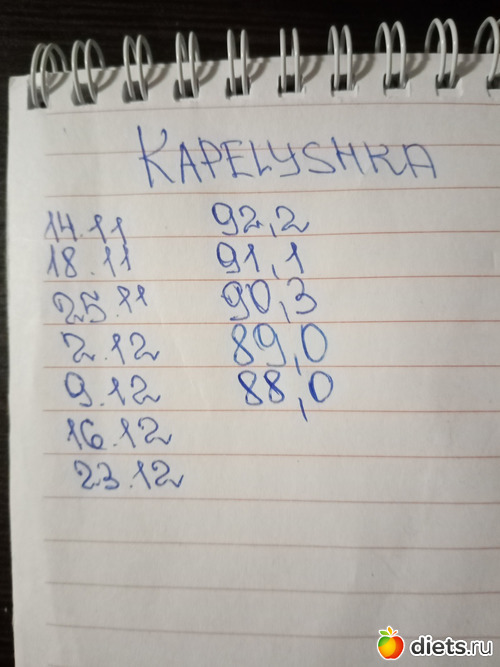 KAPELYSHKA
14.11 92,2
18.11 91,1
25.11 90,3
2.12 89,0
9.12 88,0
16.12
23.12
diets.ru